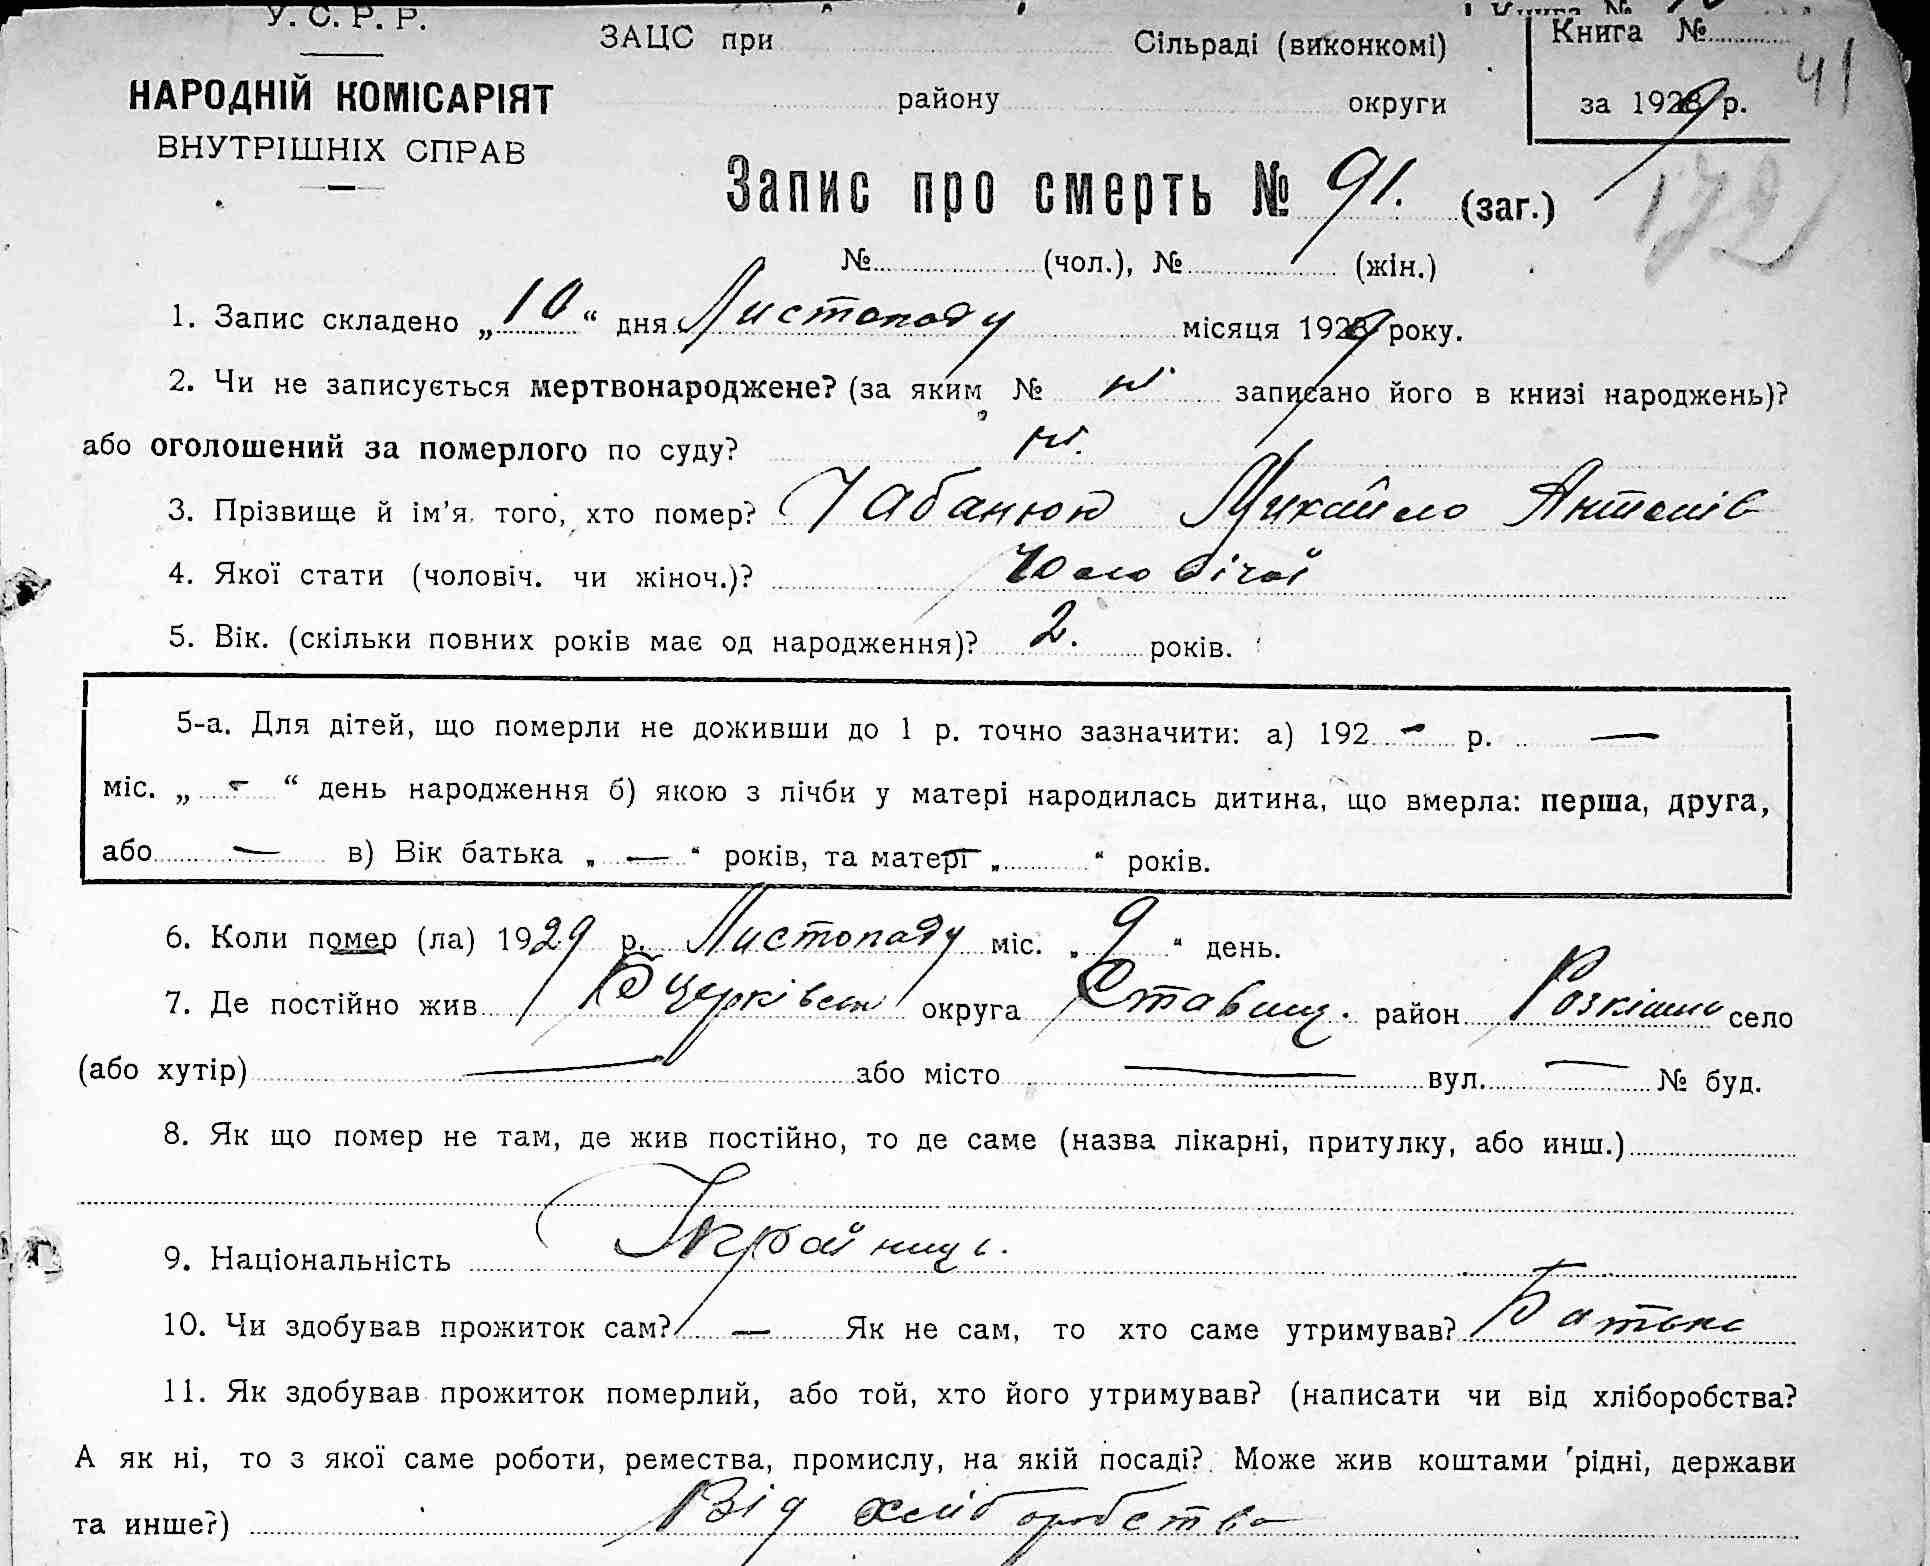 У. С. Р. Р.
НАРОДНІЙ КОМІСАРІЯТ
ВНУТРІШНІХ СПРАВ
ЗАЦС при Сільраді (виконкомі)
району округи
Книга №
за 1929 р.
41
172
Запис про смерть № 91. (заг.)
№ (чол.), № (жін.)
1. Запис складено „10“ дня Листопаду місяця 1929 року.
2. Чи не записується мертвонароджене? (за яким № ні записано його в книзі народжень)?
або оголошений за померлого по суду? ні.
3. Прізвище й ім’я того, хто помер? Чабанюк Михайло Антонів
4. Якої стати (чоловіч. чи жіноч.)? Чоловічої
5. Вік. (скільки повних років має од народження)? 2. років.
5-а. Для дітей, що померли не доживши до 1 р. точно зазначити: а) 192 - р. —
міс. „ - “ день народження б) якою з лічби у матері народилась дитина, що вмерла: перша, друга,
або — в) Вік батька „ — “ років, та матері „ “ років.
6. Коли помер (ла) 1929 р. Листопаду міс. „ 9 “ день.
7. Де постійно жив Б Церківськ округа Ставищ. район Розкішно село
(або хутір) — або місто — вул. — № буд.
8. Як що помер не там, де жив постійно, то де саме (назва лікарні, притулку, або инш.)
9. Національність Українець.
10. Чи здобував прожиток сам? — Як не сам, то хто саме утримував? Батько
11. Як здобував прожиток померлий, або той, хто його утримував? (написати чи від хліборобства?
А як ні, то з якої саме роботи, ремества, промислу, на якій посаді? Може жив коштами рідні, держави
та инше?) Від хліборобства